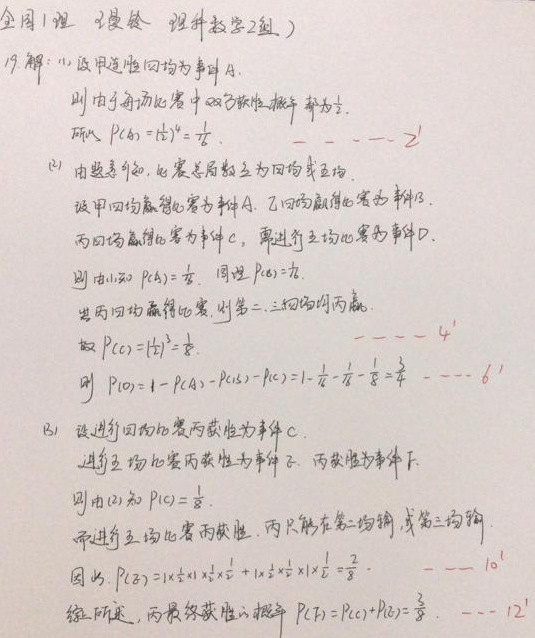 全国1理 理科数学2组)
19.解:(1)设甲连胜四场为事件A.
则由于每场比赛中双方获胜概率都为½.
所以 P(A)=(½)⁴=1/16. - - - - - 2'
(2) 由题意可知,比赛总局数至为四场或五场.
设甲四场赢得比赛为事件A. 乙四场赢得比赛为事件B.
丙四场赢得比赛为事件C, 需进行五场比赛为事件D.
则由(1)知 P(A)=1/16. 同理P(B)=1/16.
当丙四场赢得比赛,则第二.三四场均丙赢.
故 P(C)=(½)³=⅛. - - - - 4'
则 P(D)=1-P(A)-P(B)-P(C)=1-1/16-1/16-1/8=3/4 - - - - 6'
(3) 设进行四场比赛丙获胜为事件C.
进行五场比赛丙获胜为事件E. 丙获胜为事件F.
则由(2)知 P(C)=⅛.
而进行五场比赛丙获胜,丙只能在第二场输,或第三场输
因此. P(E)=1×½×1×½×½+1×½×½×1×½=2/8. - - - 10'
综上所述,丙最终获胜的概率 P(F)=P(C)+P(E)=3/8. - - - 12'